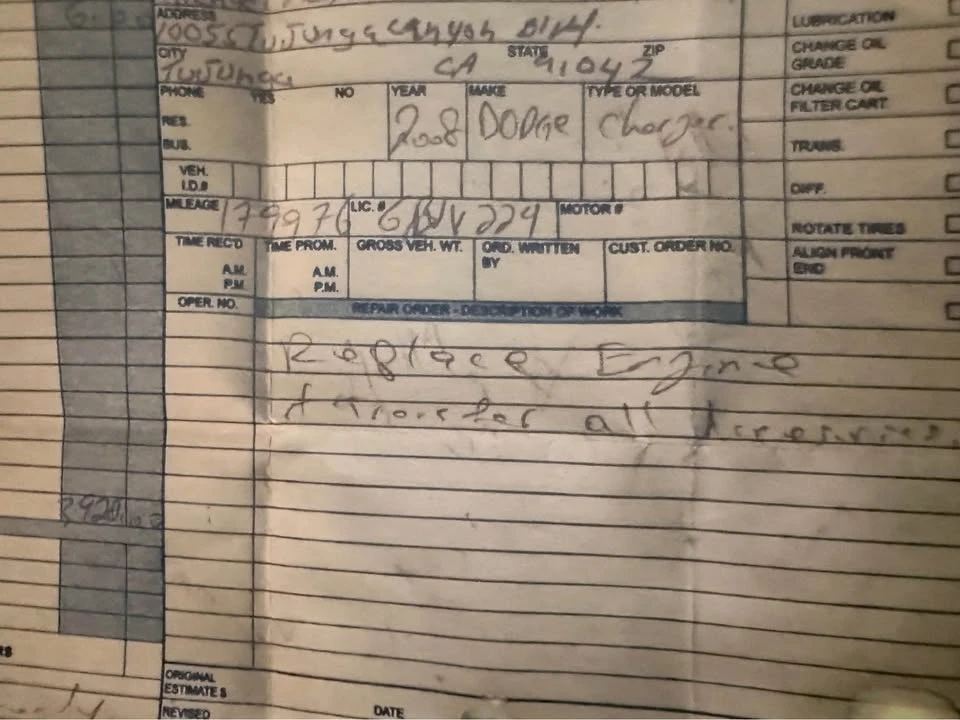 ADDRESS
Tujunga Canyon Blvd.
CITY STATE ZIP
Tujunga CA 91042
PHONE YES NO YEAR MAKE TYPE OR MODEL
RES.
BUS.
2008 DODGE Charger.
VEH.
I.D.#
MILEAGE 179976 LIC. # MOTOR #
TIME REC'D TIME PROM. GROSS VEH. WT. ORD. WRITTEN BY CUST. ORDER NO.
A.M. A.M.
P.M. P.M.
OPER. NO. REPAIR ORDER - DESCRIPTION OF WORK
Replace Engine
transfer all
ORIGINAL
ESTIMATE $
REVISED DATE
LUBRICATION
CHANGE OIL
GRADE
CHANGE OIL
FILTER CART.
TRANS.
DIFF.
ROTATE TIRES
ALIGN FRONT
END